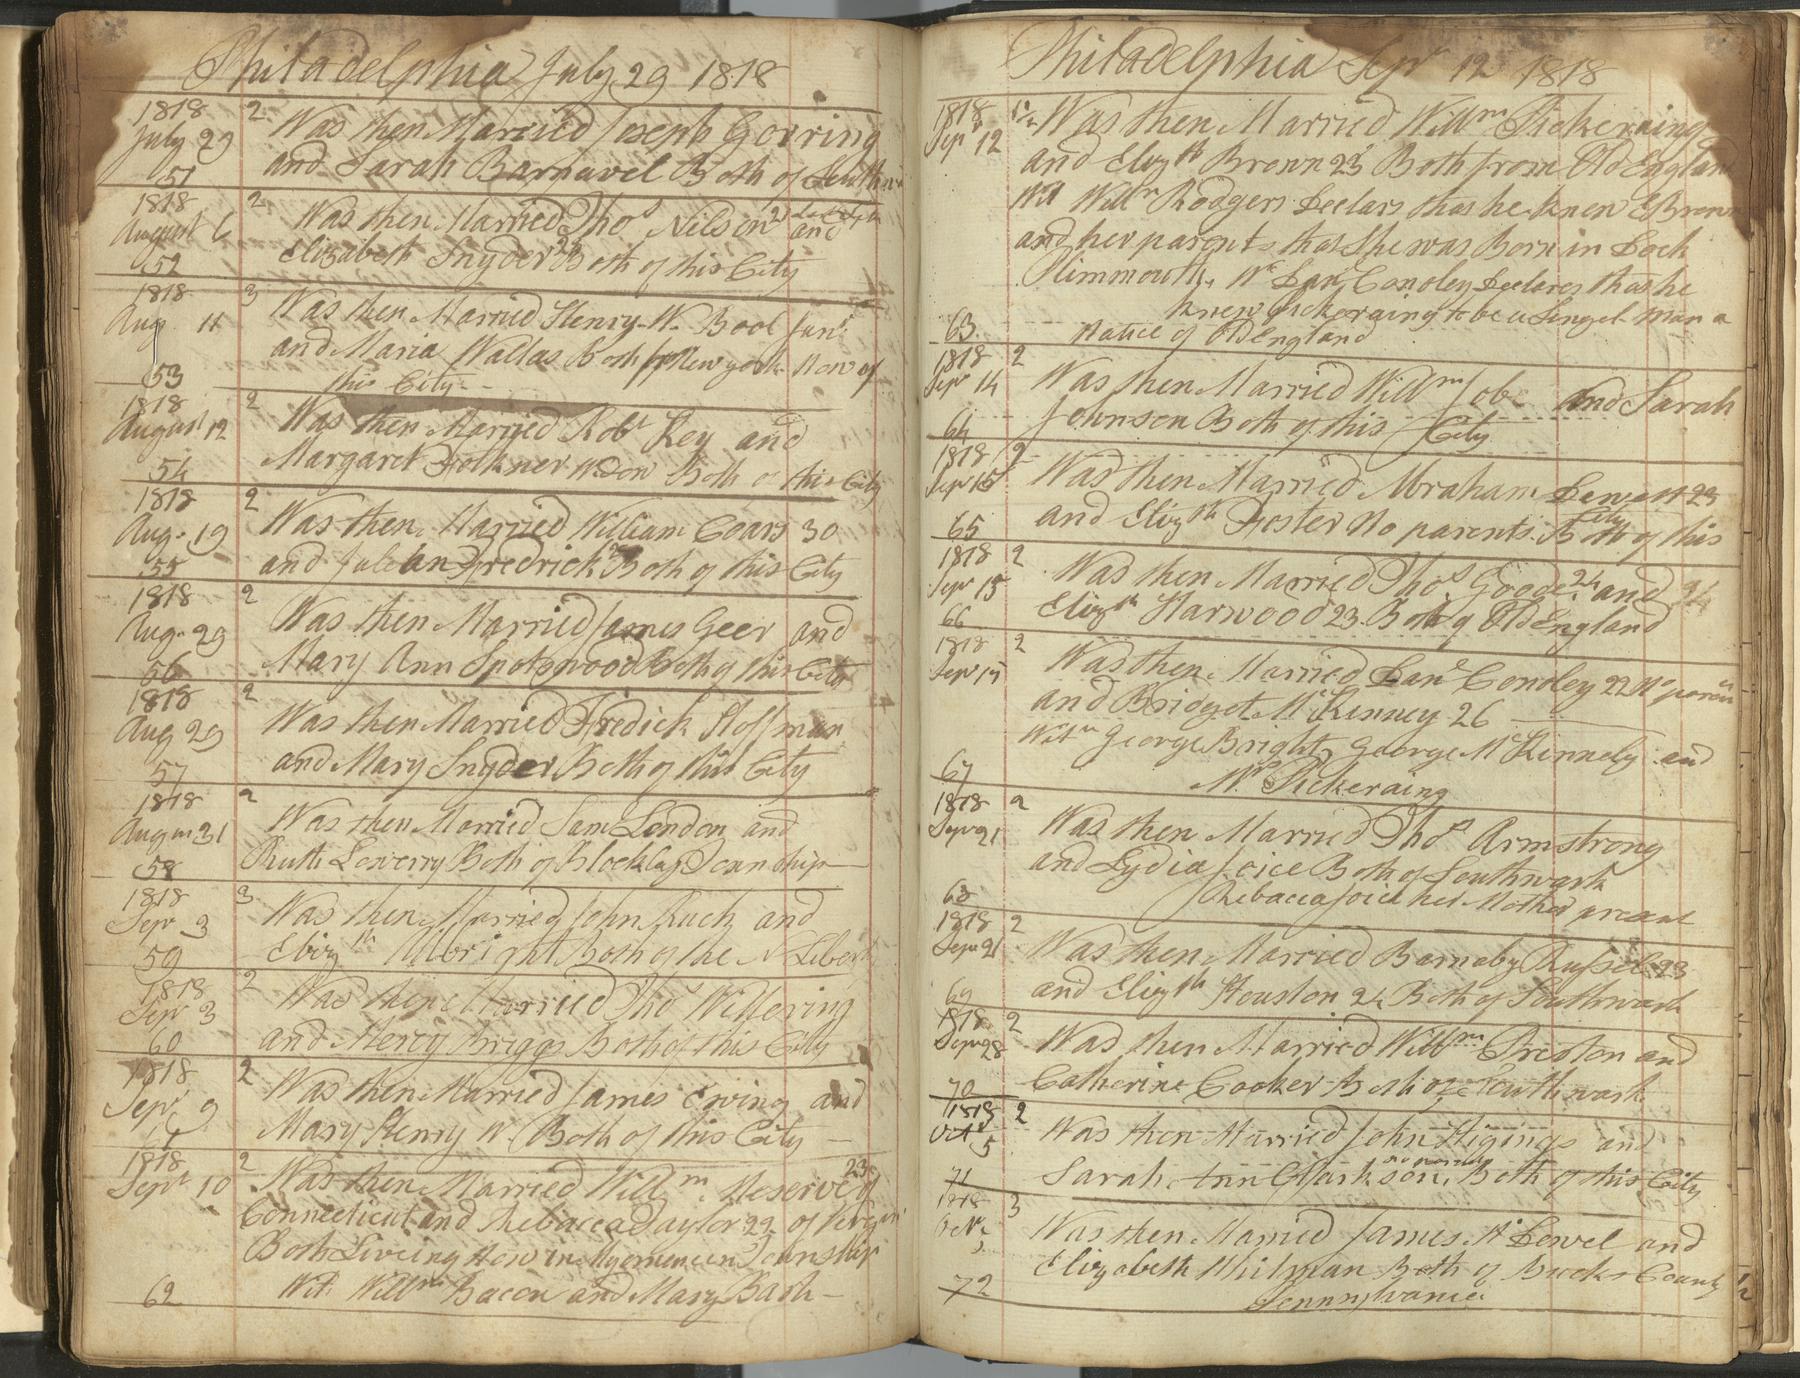 Philadelphia July 29 1818
1818 2 Was then Married Joseph Gorring
July 29 and Sarah Barnavel Both of
51
1818 2 Was then Married Thos Nilson 21 and
August 6 Elizabeth Snyder Both of this City
52
1818 3 Was then Married Henry W. Bool Junr
Aug. 11 and Maria Wallas Both New york Now of
53 this City
1818 2 Was then Married Robt Key and
August 12 Margaret Both of this City
54
1818 2 Was then Married William Coars 30
Aug. 19 and Fredrick Both of this City
55
1818 2 Was then Married James Geer and
Aug. 29 Mary Ann Spotswood Both of this City
56
1818 2 Was then Married Fredick Hoffman
Aug 29 and Mary Snyder Both of this City
57
1818 2 Was then Married Sam London and
Augm 31 Ruth Lowerry Both of Blockley Township
58
1818 3 Was then Married John Ruch and
Sepr 3 Elizth Albright Both of the N Libert
59
1818 2 Was then Married Thos Willering
Sepr 3 and Mercy Briggs Both of this City
60
1818 2 Was then Married James Ewing and
Sepr 9 Mary Henry W. Both of this City
61
1818 2 Was then Married Willm Meserve 23 of
Sept 10 Connecticut and Rebacca Taylor 22 of
Both Liveing Now in Township
62 Wit. Willm Bacon and Mary Bash
Philadelphia Sepr 12 1818
1818 Was then Married Willm Pickeraing
Sepr 12 and Elizth Brown 23 Both from Old England
Wit Willm Rodgers Declars that he knew E Brown
and her parents that She was Born in Dock
Plimmouth. Wt Danl Conoley Declares that he
knew Pickeraing to be a Singel man a
63 Native of Old England
1818 2 Was then Married Willm Jobe and Sarah
Sepr 14 Johnson Both of this City
64
1818 2 Was then Married Abraham 23
Sepr 15 and Elizth Foster No parents. Both of this City
65
1818 2 Was then Married Thos Goode 24 and
Sepr 15 Elizth Harwood 23 Both of Old England
66
1818 2 Was then Married Danl Conoley 22 No parents
Sepr 17 and Bridget McKinney 26
Witn George Bright George McKinnely and
67 Mr Pickeraing
1818 2 Was then Married Thos Armstrong
Sepr 21 and Lydia Joice Both of Southwark
68 Rebacca Joice her Mother present
1818 2 Was then Married Barnaby Russel 23
Sepr 21 and Elizth Houston 24 Both of Southwark
69
1818 2 Was then Married Willm Preston and
Sepr 28 Catherine Cooker Both of Southwark
70
1818 2 Was then Married John Higings and
Oct 5 Sarah Ann Clarkson, no parents Both of this City
71
1818 3 Was then Married James H Lewel and
Oct. Elizabeth Whitman Both of Bucks County
72 Pennsylvania